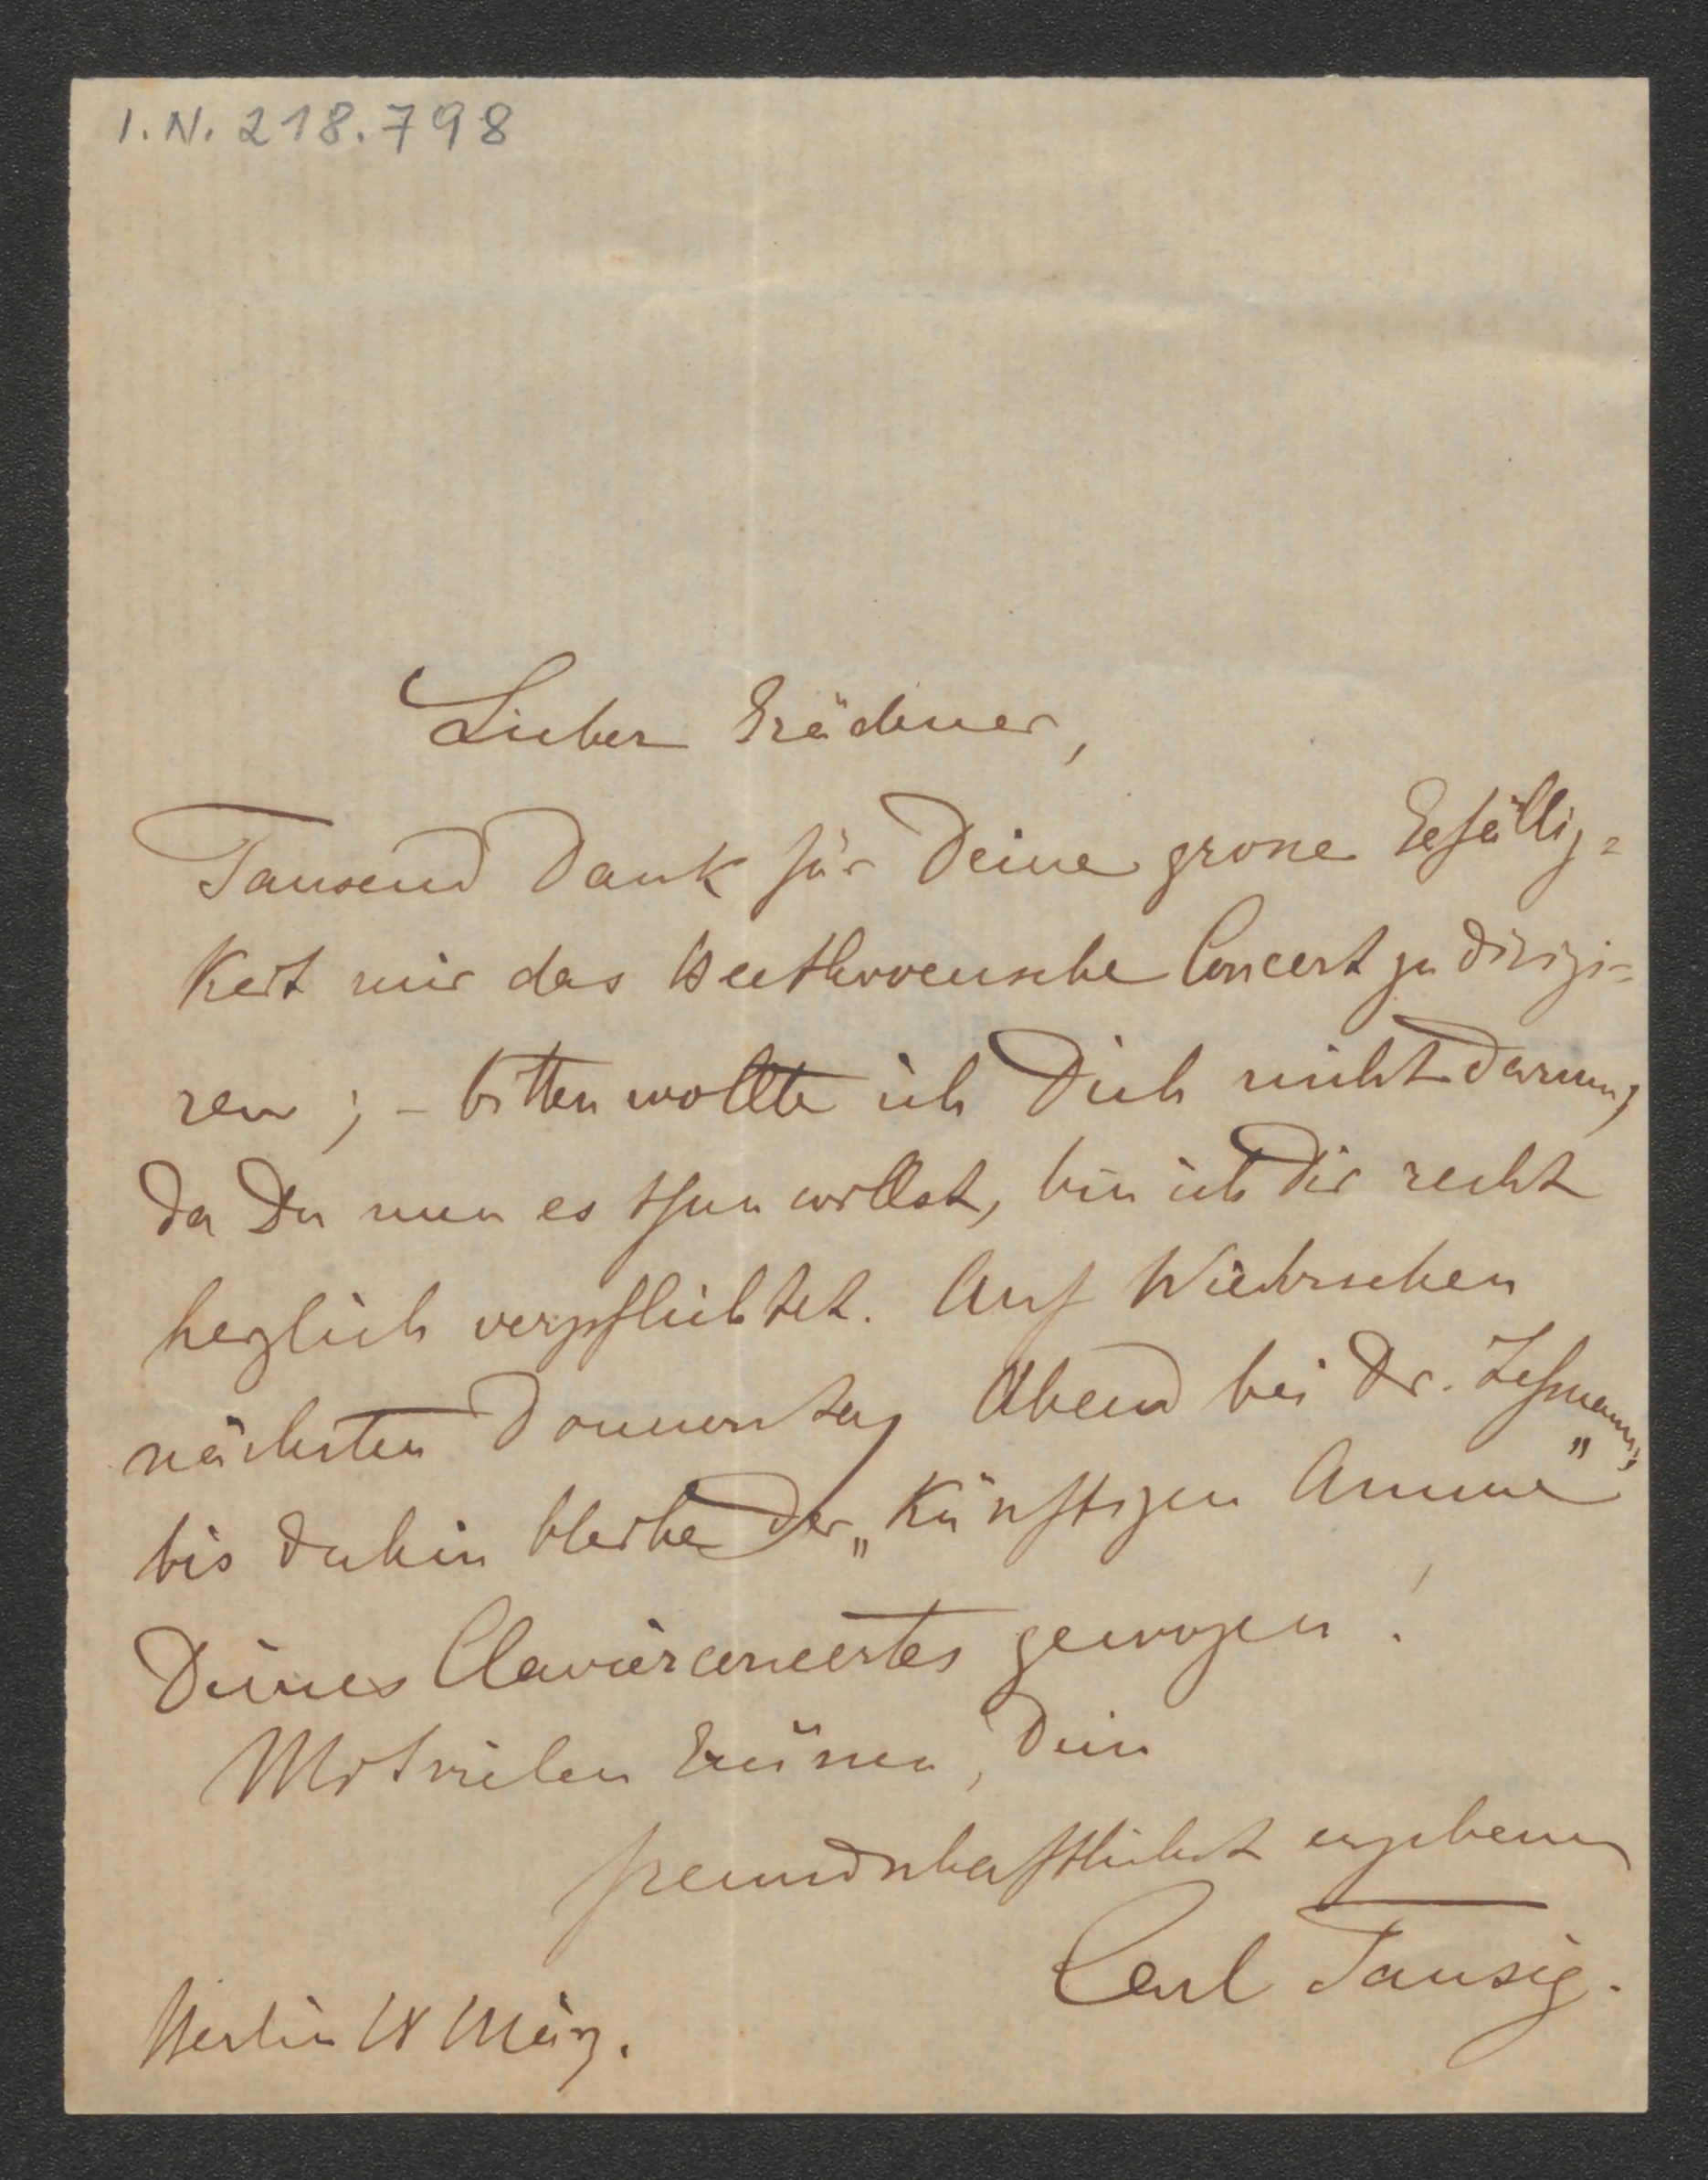 I.N. 218.798
Lieber Grädener,
Tausend Dank für Deine grosse Gefällig=
keit mir das Beethovensche Concert zu dirigi=
ren ; – bitten wollte ich Dich nicht darum,
da Du nun es thun willst, bin ich Dir recht
herzlich verpflichtet. Auf Wiedersehen
nächsten Donnerstag Abend bei Dr.
bis dahin bleibe der „Künftigen Amme"
Deines Clavierconcertes gewogen !
Mit vielen Grüssen, Dein
freundschaftlichst ergebener
Carl Tausig.
Berlin 18 März.